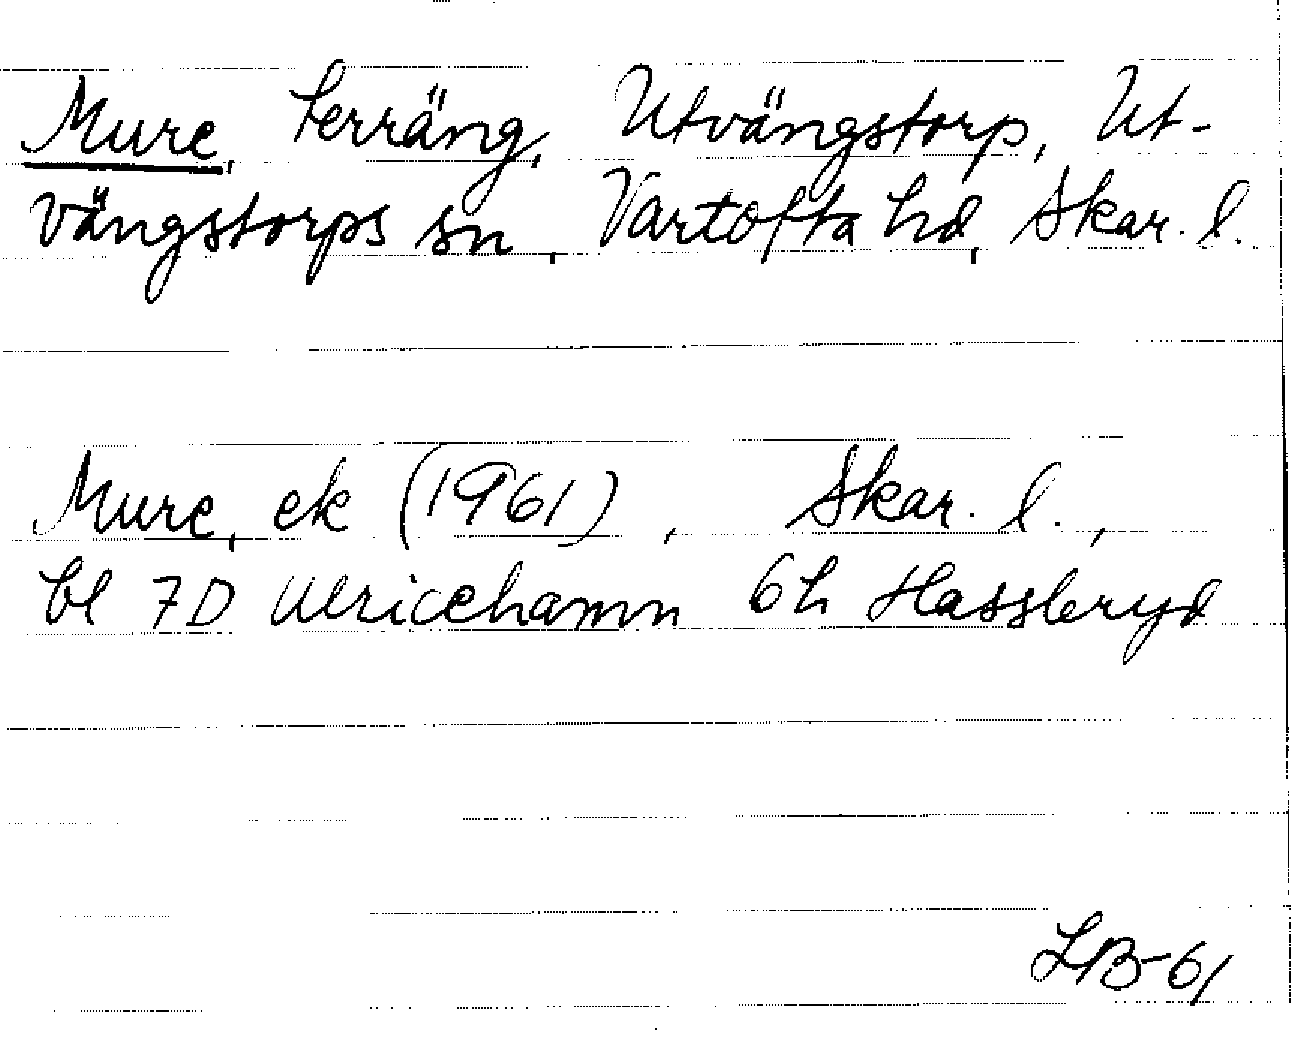 Mure, terräng, Utvängstorp, Ut-
vängstorps sn, Vartofta hd, Skar. l.
Mure, ek (1961), Skar. l.,
bl 7D Ulricehamn 6h Hassleryd
LB-61